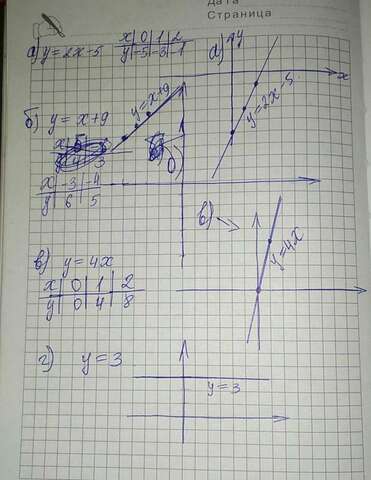 Дата
Страница
а) y=2x-5
x 0 1 2
y -5 -3 -1
а) y
x
y=2x-5
б) y=x+9
x -3 -4
y 6 5
y=x+9
б)
в) y=4x
x 0 1 2
y 0 4 8
в)
y=4x
г) y=3
y=3